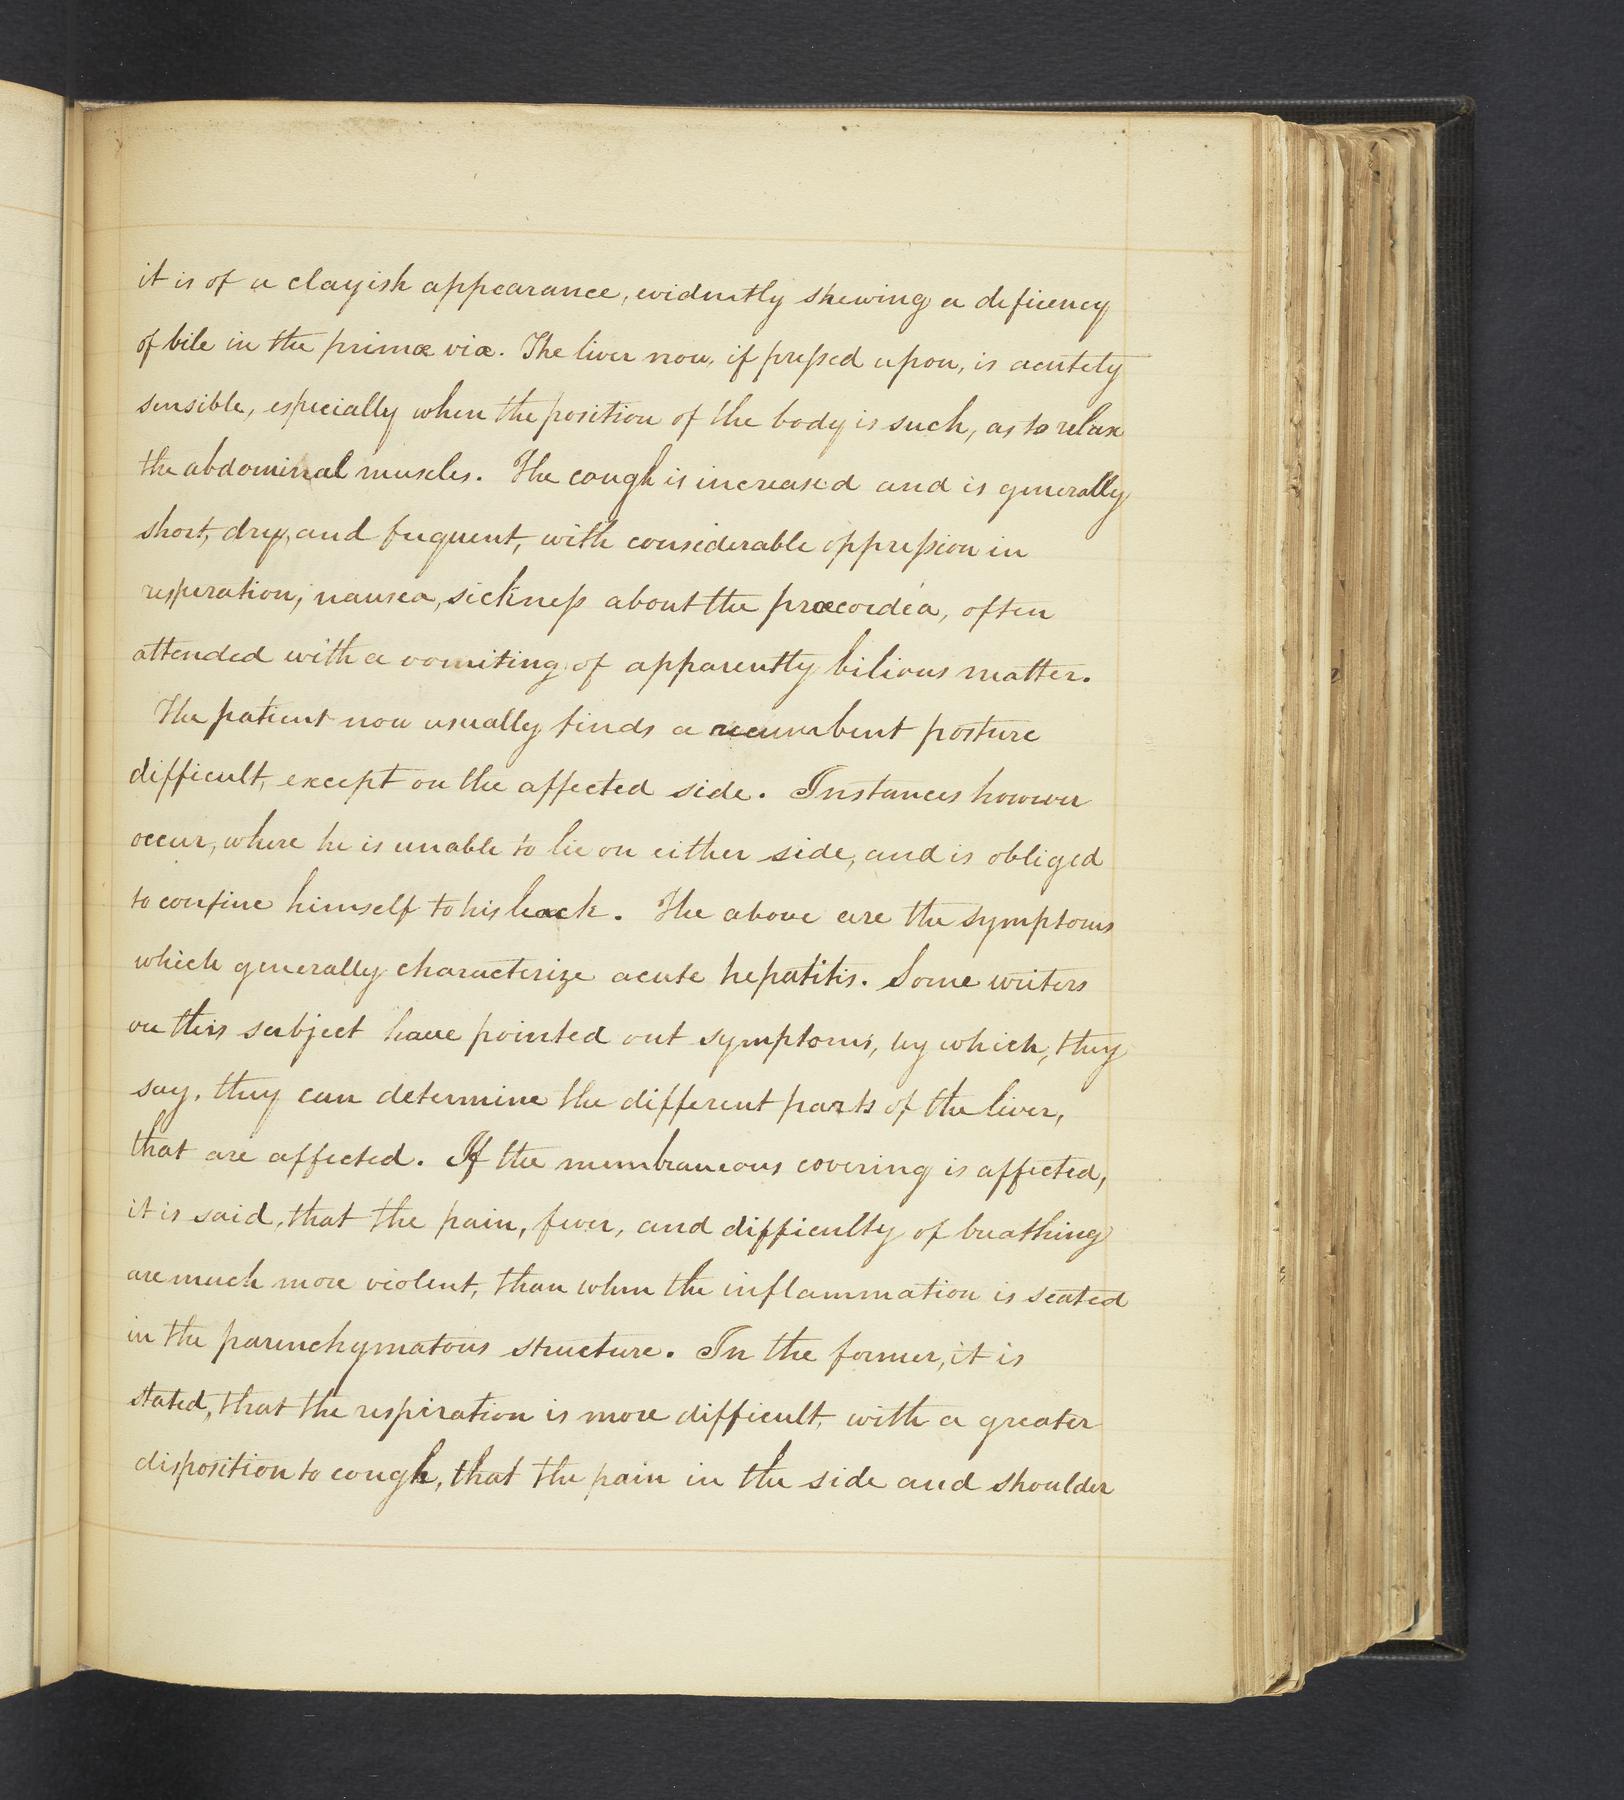 it is of a clayish appearance, evidently shewing a deficency
of bile in the primæ viæ. The liver now, if pressed upon, is acutely
sensible, especially when the position of the body is such, as to relax
the abdominal muscles. The cough is increased and is generally
short, dry, and frequent, with considerable oppression in
respiration, nausea, sickness about the præcordea, often
attended with a vomiting of apparently bilious matter.
The patient now usually finds a recumbent posture
difficult, except on the affected side. Instances however
occur, where he is unable to lie on either side, and is obliged
to confine himself to his back. The above are the symptoms
which generally characterize acute hepatitis. Some writers
on this subject have pointed out symptoms, by which, they
say, they can determine the different parts of the liver,
that are affected. If the membraneous covering is affected,
it is said, that the pain, fever, and difficulty of breathing
are much more violent, than when the inflammation is seated
in the parenchymatous structure. In the former, it is
stated, that the respiration is more difficult, with a greater
disposition to cough, that the pain in the side and shoulder